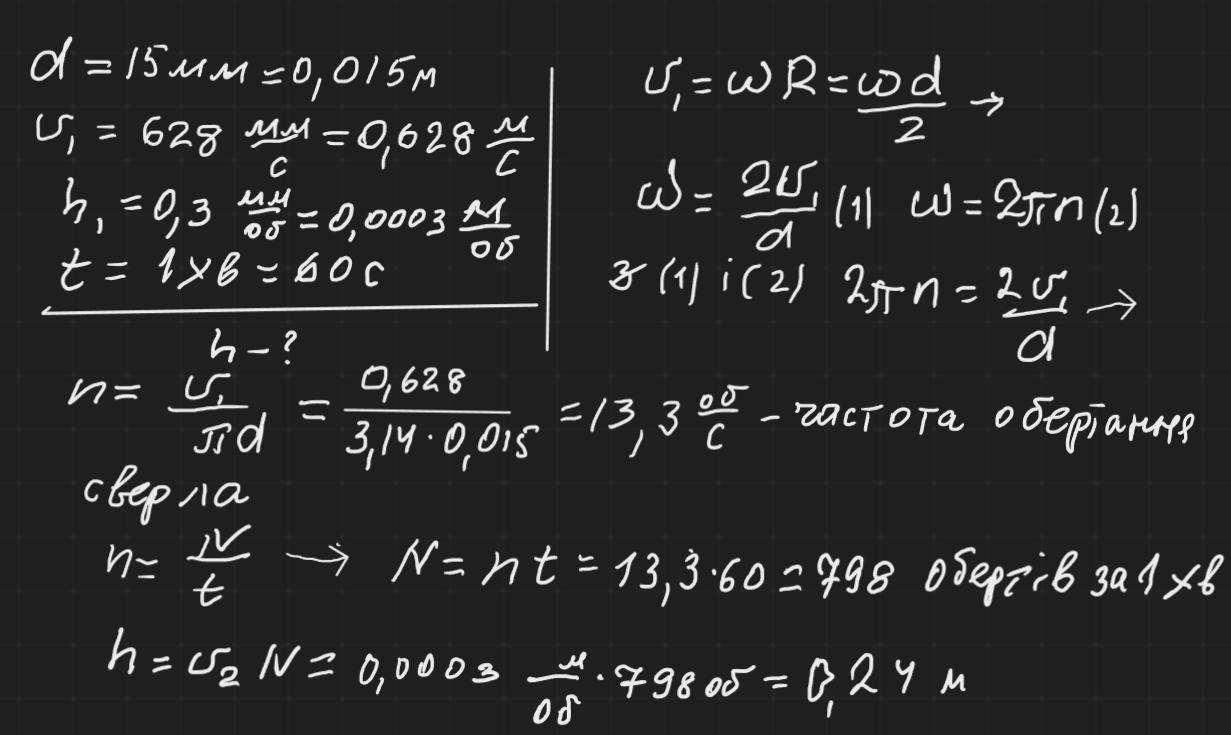 d = 15мм = 0,015м
υ₁ = 628 мм/с = 0,628 м/с
h₁ = 0,3 мм/об = 0,0003 м/об
t = 1хв = 60с
h - ?
υ₁ = ωR = ωd/2 →
ω = 2υ₁/d (1) ω = 2πn (2)
з (1) і (2) 2πn = 2υ₁/d →
n = υ₁/πd = 0,628/3,14·0,015 = 13,3 об/с - частота обертання
сверла
n = N/t → N = nt = 13,3·60 = 798 обертів за 1 хв
h = υ₂N = 0,0003 м/об · 798об = 0,24 м